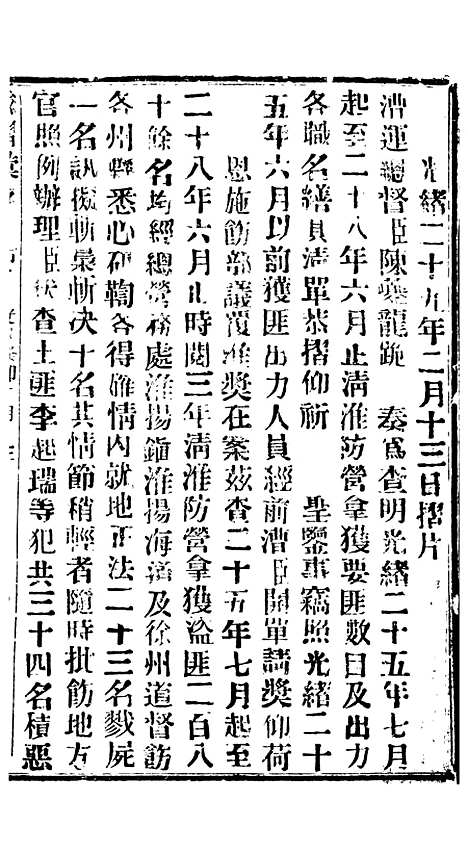 光緒二十九年二月十三日摺片
漕運總督臣陳夔龍跪 奏為查明光緒二十五年七月
起至二十八年六月止清淮防營拿獲要匪數目及出力
各職名繕具清單恭摺仰祈 聖鑒事竊照光緒二十
五年六月以前獲匪出力人員經前漕臣開單請獎仰荷
恩施飭部議覆准獎在案茲查二十五年七月起至
二十八年六月止時閱三年清淮防營拿獲盜匪二百八
十餘名均經總營務處淮揚鎮淮揚海道及徐州道督飭
各州縣悉心研鞫各得確情內就地正法二十三名戮屍
一名訊擬斬梟斬決十名其情節稍輕者隨時批飭地方
官照例辦理臣伏查土匪李起瑞等犯共三十四名積惡